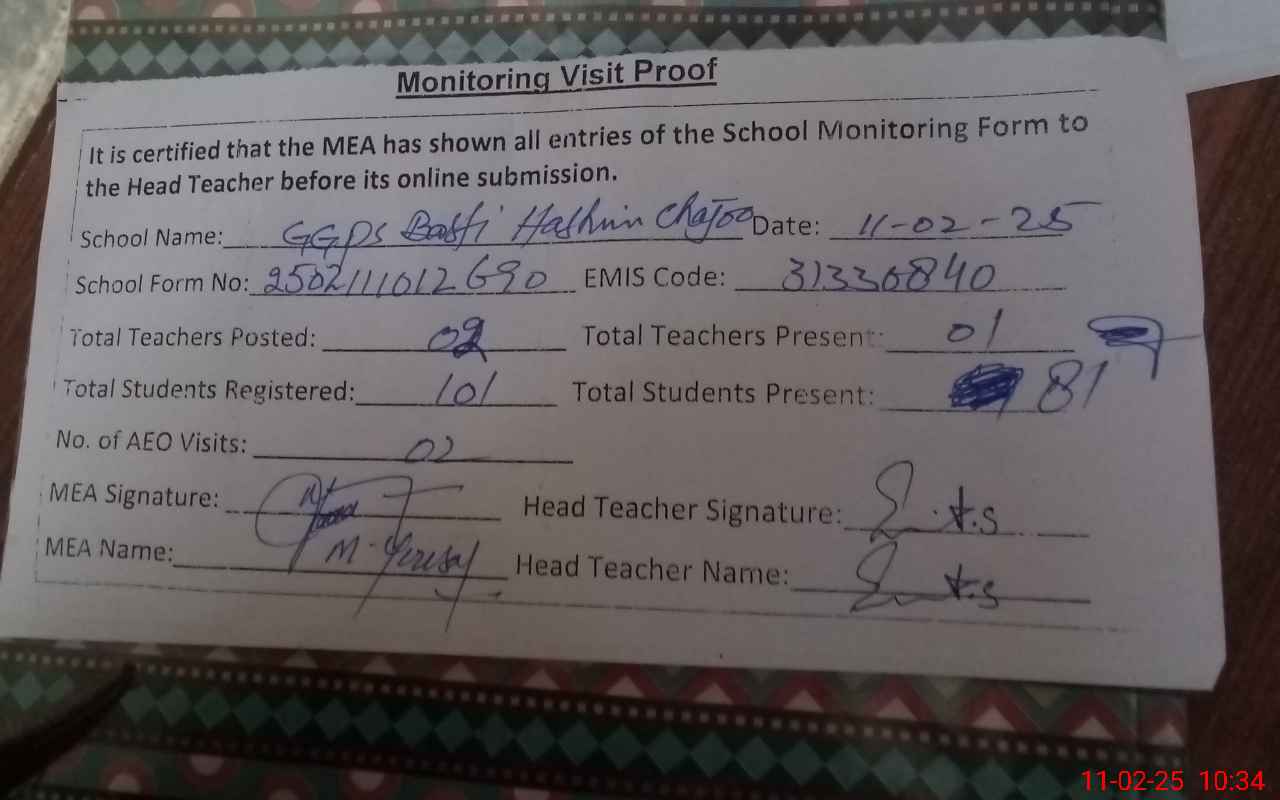 Monitoring Visit Proof
It is certified that the MEA has shown all entries of the School Monitoring Form to
the Head Teacher before its online submission.
School Name: GGPS Basti Hashim Chajoo Date: 11-02-25
School Form No: 2502111012690 EMIS Code: 31330840
Total Teachers Posted: 02 Total Teachers Present: 01
Total Students Registered: 101 Total Students Present: 81
No. of AEO Visits: 02
MEA Signature: Head Teacher Signature:
MEA Name: M. Head Teacher Name:
11-02-25 10:34